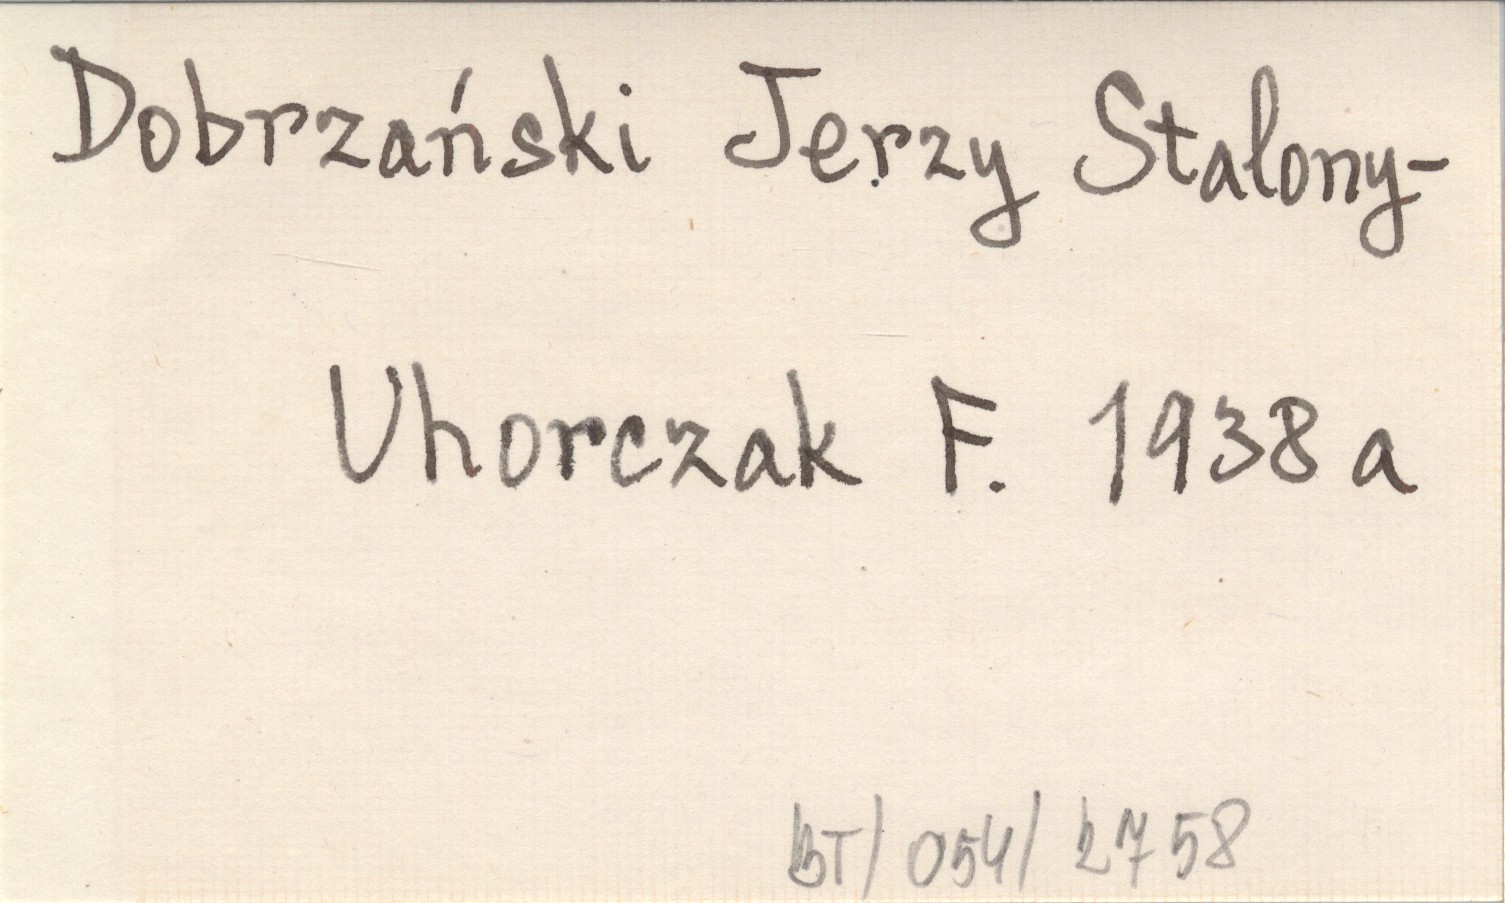 Dobrzański Jerzy Stalony-
Uhorczak F. 1938 a
BT/054/2758